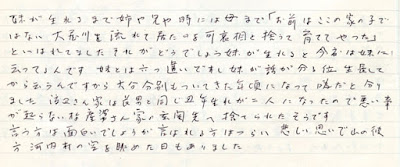 妹が生れるまで姉や兄や時には母まで「お前はここの家の子で
はない 大荒川を流れて居たのを可哀相と捨って育ててやった」
といはれてましたそれがどうでしょう妹が生れると今度は妹に
云ってるんです 妹とは六つ違いですし妹が話が分る位生長して
から云うんですから大分分別もついてきた頃になって嘘だと分り
ました 治又さん家は長男と同じ丑年生れが二人になったので悪い事
が起らない様産婆さん家の玄関先へ捨てられたそうです
言う方は面白いでしょうが言はれる方はつらい 悲しい思いで山の彼
方河田村の空を眺めた日もありました